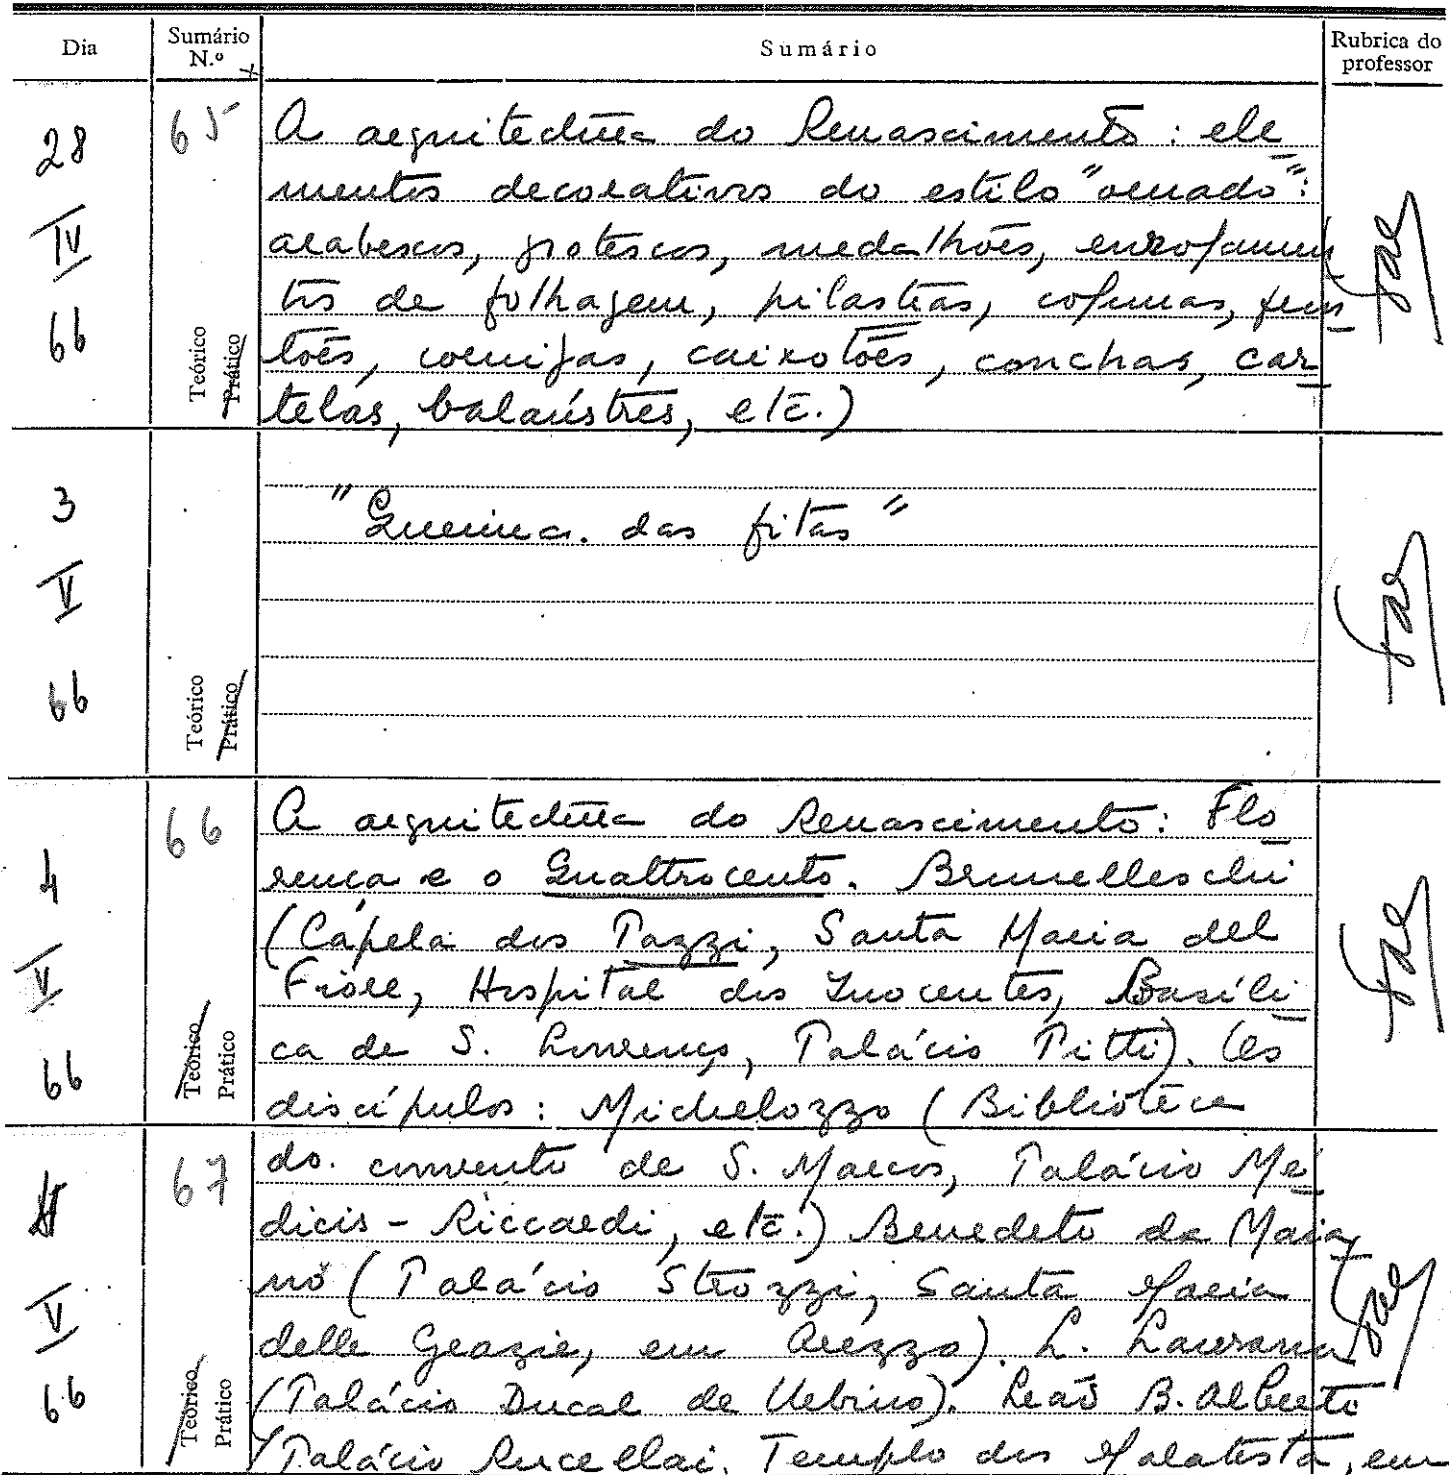 Dia Sumário N.º Sumário Rubrica do professor
28 IV 66
65
Teórico Prático
A arquitectura do Renascimento: ele
mentos decorativos do estilo "ornado":
arabescos, grotescos, medalhões, enrolamen
tos de folhagem, pilastras, colunas, fes
tões, cornijas, caixotões, conchas, car
telas, balaústres, etc.)
3 V 66
Teórico Prático
"Queima das fitas"
4 V 66
66
Teórico Prático
A arquitectura do Renascimento: Flo
rença e o Quattrocento. Brunelleschi
(Capela dos Pazzi, Santa Maria del
Fiore, Hospital dos Inocentes, Basíli
ca de S. Lourenço, Palácio Pitti). Os
discípulos: Michelozzo (Biblioteca
V 66
67
Teórico Prático
do convento de S. Marcos, Palácio Mé
dicis-Riccardi, etc.) Benedeto da Maia
no (Palácio Strozzi, Santa Maria
delle Grazie, em Arezzo). L. Laurana
(Palácio Ducal de Urbino). Leão B. Alberti
(Palácio Rucellai. Templo dos Malatesta, em